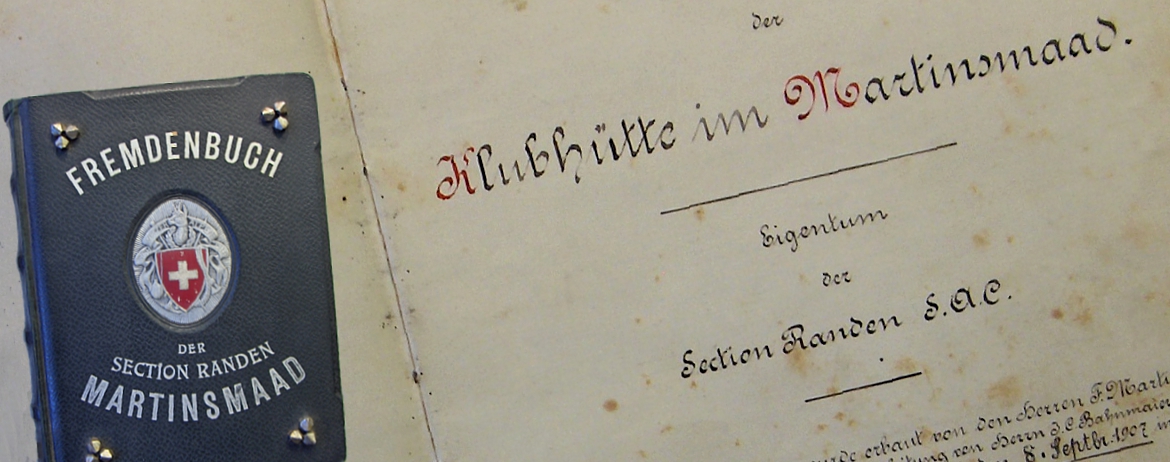 FREMDENBUCH
DER
SECTION RANDEN
MARTINSMAAD
der
Klubhütte im Martinsmaad.
Eigentum
der
Section Randen S.A.C.
erbaut von den Herren F. Marti
von Herrn J.C. Bahnmaier
8. Septbr. 1907